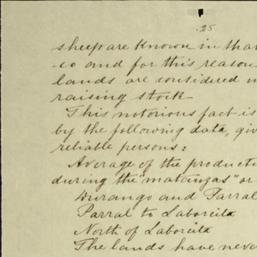 25
sheep are known in that
co and for this reason
lands are considered
raising stock
This notorious fact is
by the following data, giv
reliable persons:
Average of the producti
during the "matanzas" or
Durango and Parral
Parral to Laborcita
North of Laborcita
The lands have never